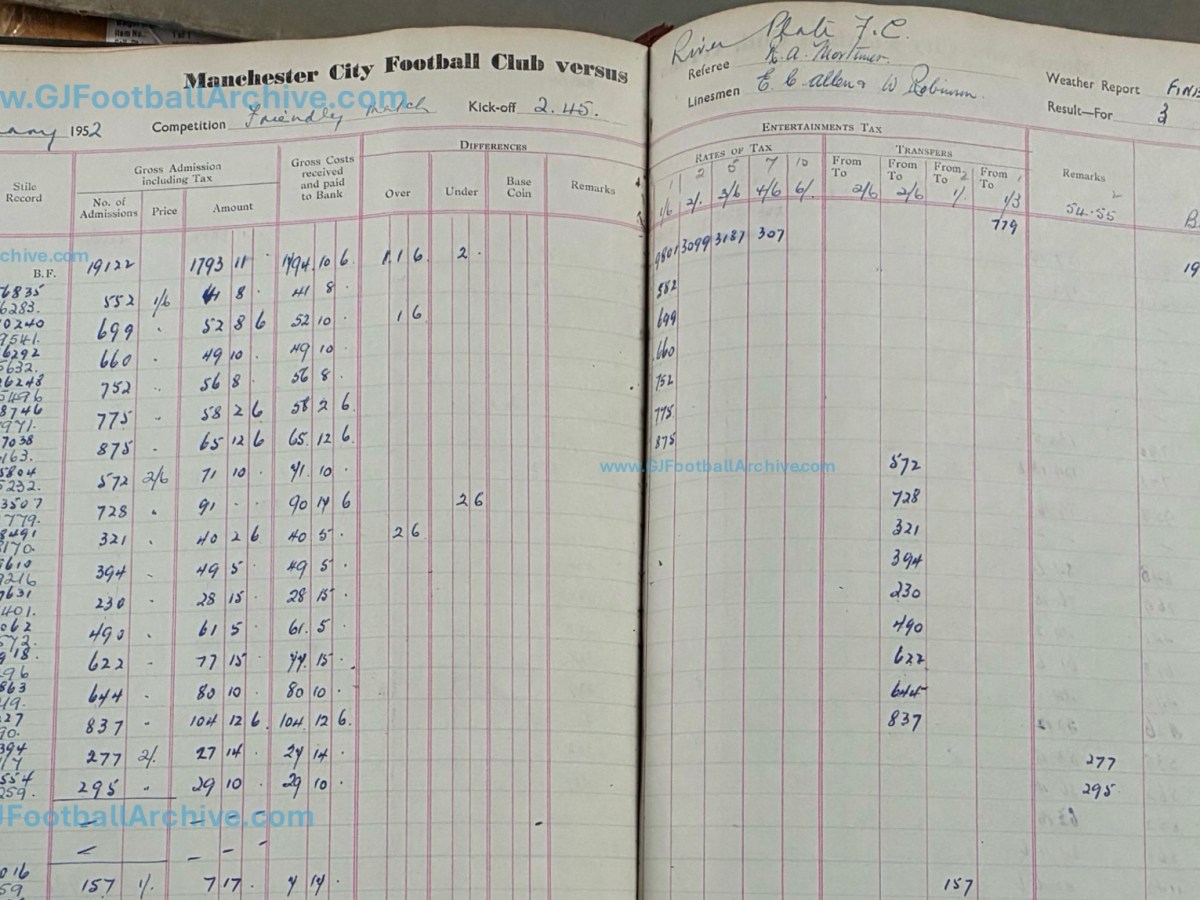 Item No.: 1 of 1
Manchester City Football Club versus River Plate F.C.
www.GJFootballArchive.com
Referee R.A. Mortimer
Linesmen E.C. Allen & W Robinson.
Weather Report FINE
1952 Competition Friendly match Kick-off 2.45.
Result—For 3
DIFFERENCES
ENTERTAINMENTS TAX
Stile Record
Gross Admission including Tax
No. of Admissions Price Amount
Gross Costs received and paid to Bank
Over Under Base Coin Remarks
RATES OF TAX
1 2 5 7 10
1/6 2/. 3/6 4/6 6/.
TRANSFERS
From To 2/6 From To 2/6 From 2 To 1/. From 1 To 1/3
Remarks
54-55
779
B.F. 19122 1793 11 . 1794 10 6 1.1 6 2 . 9801 3099 3187 307
6835 552 1/6 41 8 . 41 8 . 552
6283.
0240 699 . 52 8 6 52 10 . 1 6 699
9541.
6292 660 . 49 10 . 49 10 . 660
5632.
6248 752 . 56 8 . 56 8 . 752
5496
8746 775 . 58 2 6 58 2 6. 775
7971.
7038 875 . 65 12 6 65. 12 6. 875
6163.
5804 572 2/6 71 10 . 71. 10 . 572
5232.
www.GJFootballArchive.com
3507 728 . 91 . . 90 17 6 2 6 728
2779.
8491 321 . 40 2 6 40 5 . 2 6 321
8170.
9610 394 . 49 5 . 49 5 . 394
9216
7631 230 . 28 15 . 28 15 . 230
7401.
062 490 . 61 5 . 61. 5 . 490
572.
918. 622 . 77 15 . 77. 15 . 622
296
863 644 . 80 10 . 80 10 . 644
219.
227 837 " 104 12 6. 104 12 6. 837
390.
394 277 2/. 27 14 . 27 14 . 277
117
554 295 " 29 10 . 29 10 . 295
259.
GJFootballArchive.com
016 157 1/. 7 17 . 7 17 . 157
859